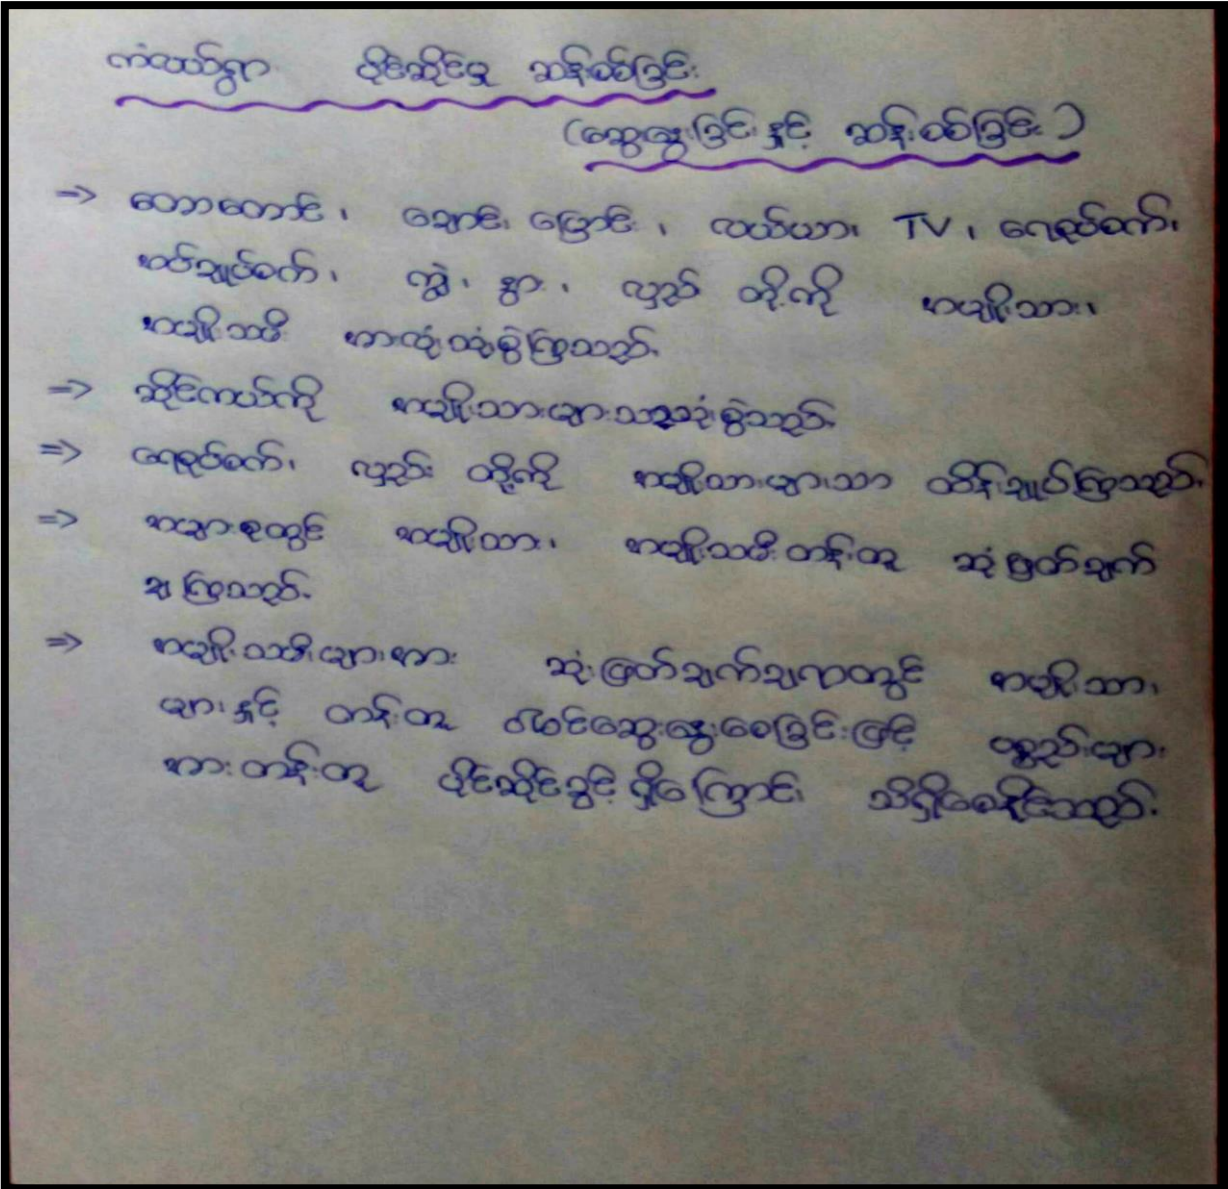 ကံလယ်ရွာ ပိုင်ဆိုင်မှု ဆန်းစစ်ခြင်း
(ဆွေးနွေးခြင်းနှင့် ဆန်းစစ်ခြင်း)
=> တောတောင်၊ ချောင်းမြောင်း၊ လယ်ယာ၊ TV၊ ရေစုပ်စက်၊
အပ်ချုပ်စက်၊ ကျွဲ၊ နွား၊ လှည်း တို့ကို အမျိုးသား၊
အမျိုးသမီး အားလုံးသုံးစွဲကြသည်။
=> ဆိုင်ကယ်ကို အမျိုးသားများသာသုံးစွဲသည်။
=> ရေစုပ်စက်၊ လှည်း တို့ကို အမျိုးသားများသာ ထိန်းချုပ်ကြသည်။
=> အများစုတွင် အမျိုးသား၊ အမျိုးသမီးတန်းတူ ဆုံးဖြတ်ချက်
ချကြသည်။
=> အမျိုးသမီးများအား ဆုံးဖြတ်ချက်ချရာတွင် အမျိုးသား
များနှင့် တန်းတူ ပါဝင်ဆွေးနွေးစေခြင်းဖြင့် ပစ္စည်းများ
အားတန်းတူ ပိုင်ဆိုင်ခွင့်ရှိကြောင်း သိရှိစေနိုင်သည်။